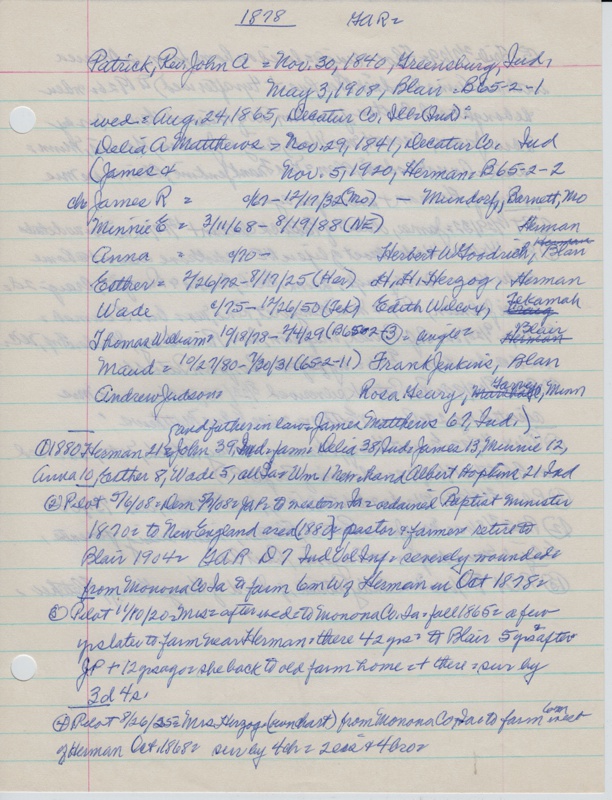 1878 GAR=
Patrick, Rev. John A = Nov. 30, 1840, Greensburg, Ind,
May 3, 1908, Blair = B65-2-1
wed = Aug, 24, 1865, Decatur Co, Ill = (Ind)
Delia A Matthews = Nov. 29, 1841, Decatur Co. Ind
(James & Nov. 5, 1920, Herman = B65-2-2
ch = James R = c/67 - 12/17/32 (Mo) - Mundorf, Barnett, Mo
Minnie E = 3/11/68 - 8/19/88 (NE) Herman
Anna = c/70 - Herbert W Goodrich, Blair
Esther = 2/26/72 - 8/17/25 (Her) H, H, Herzog, Herman
Wade c/75 - 12/26/50 (Tek) Edith Wilcox, Tekamah
Thomas William = 10/18/78 - 2/4/29 (B65 2-3) = single = Blair
Maud = 10/27/80 - 7/30/31 (65-2-11) Frank Jenkins, Blair
Andrew Judson = Rosa Geary, Minn
(and father in law = James Matthews 67, Ind,)
① 1880 Herman 21 = John 39, Ind, farm = Delia 38, Ind = James 13, Minnie 12,
Anna 10, Esther 8, Wade 5, all Ia = Wm 1 = hand Albert Hopkins 21 Ind
② Pilot 5/6/08 = Dem 5/7/08 = JAP = to western Ia = ordained Baptist minister
1870 = to New England area (1880) = pastor & farmer = retire to
Blair 1904 = GAR D 7 Ind Vol Inf = severely wounded =
from Monona Co, Ia to farm 6m W of Herman in Oct 1878 =
③ Pilot 11/10/20 = Mrs = after wed to Monona Co. Ia = fall 1865 = a few
yrs later to farm near Herman = there 42 yrs = to Blair 5 yrs = after
JP + 12 yrs ago = she back to old farm home = + there = sur by
3d 4s.
④ Pilot 8/26/25 = Mrs Herzog from Monona Co, Ia to farm 6m west
of Herman Oct. 1868 = sur by 4ch = 2sis + 4 bro =